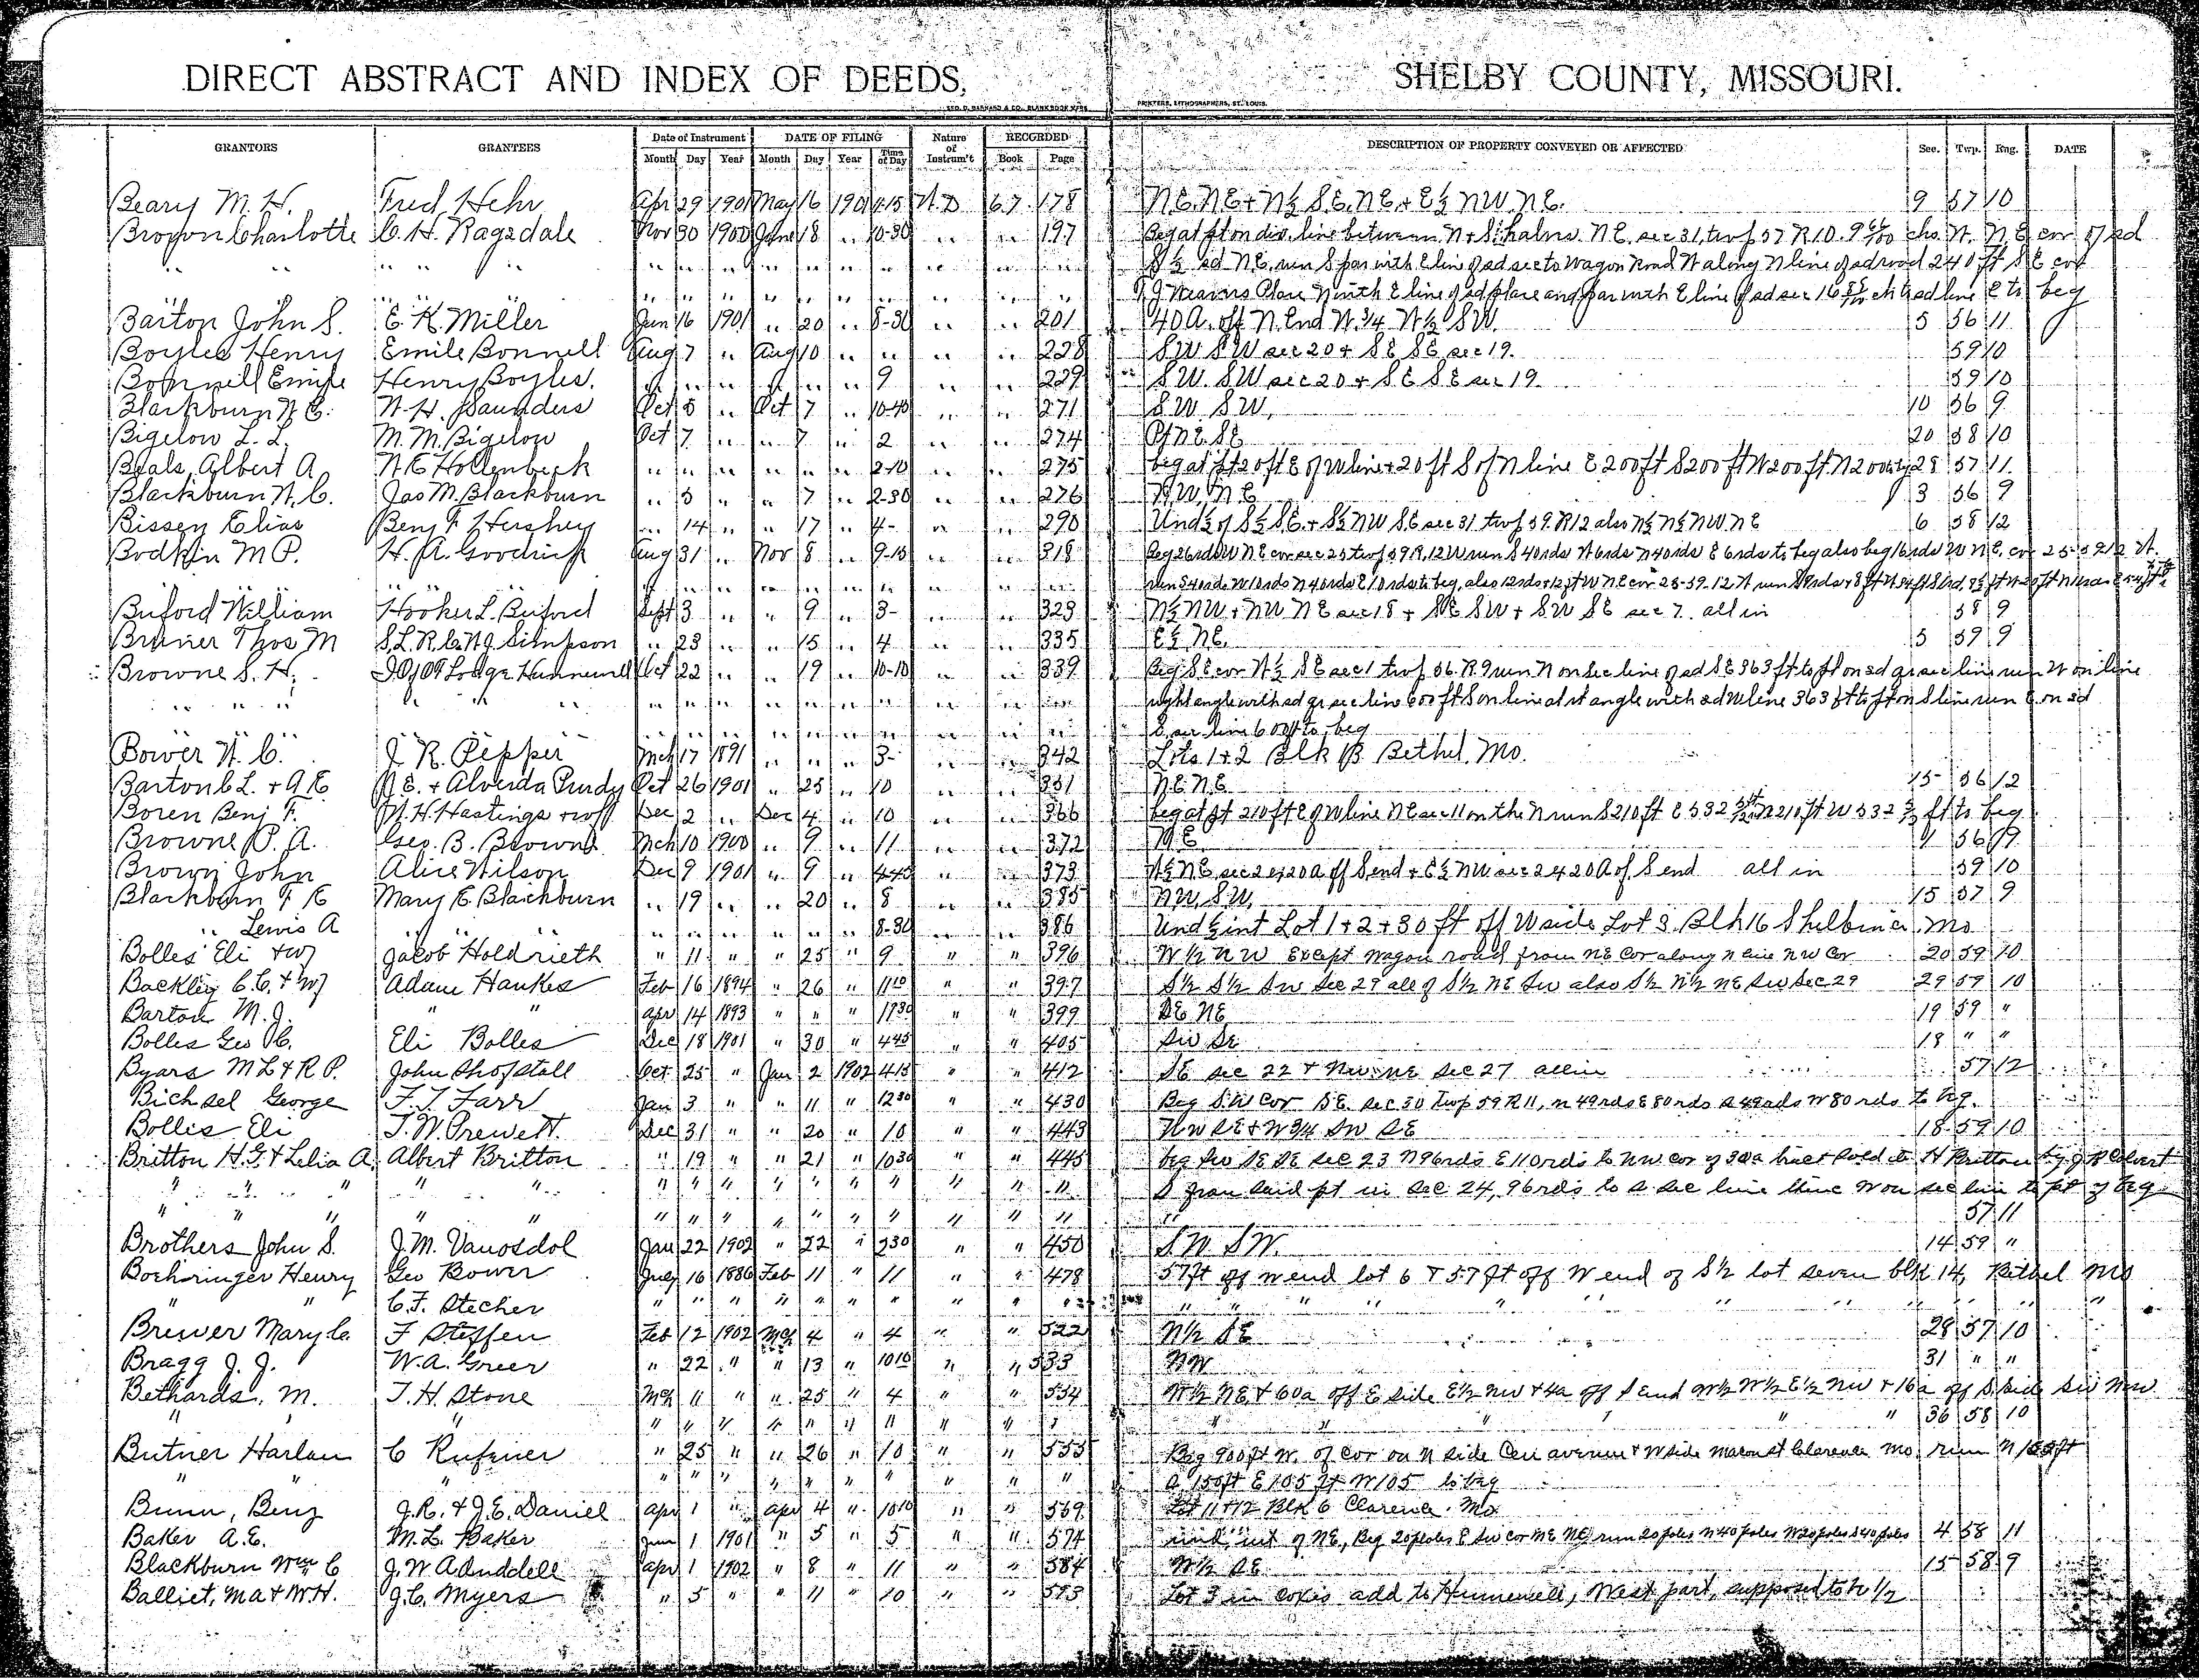 DIRECT ABSTRACT AND INDEX OF DEEDS, SHELBY COUNTY, MISSOURI.
GEO. D. BARNARD & CO. BLANK BOOK MFRS. PRINTERS, LITHOGRAPHERS, ST. LOUIS.
GRANTORS GRANTEES Date of Instrument DATE OF FILING Nature of Instrum't RECORDED DESCRIPTION OF PROPERTY CONVEYED OR AFFECTED Sec. Twp. Rng. DATE
Month Day Year Month Day Year Time of Day Book Page
Beary M. H. Fred Hehr Apr 29 1901 May 16 1901 W.D 67 178 N.E. N.E + N½ S.E. N.E + E½ NW. N.E. 9 57 10
Brown Charlotte C. H. Ragsdale Nov 30 1900 June 18 " 10-30 " " 197 Beg at pt on div. line between N + S halves N.E. sec 31, twp 57 R 10. 9 chs W. N.E cor of sd
" " " " " " " " " " " " " " S½ sd N.E. run S par with E line of sd sec to Wagon Road W along N line of sd road 240 ft S E cor
" " " " " " " " " " " " Place N with E line of sd place and par with E line of sd sec 16 ch to sd line E to beg
Barton John S. E. K. Miller Jun 16 1901 " 20 " 8-30 " " 201 40 A. off N. End W. 3/4 W½ SW. 5 56 11
Boyles Henry Emile Bonnell Aug 7 " Aug 10 " " " " 228 SW SW sec 20 + SE SE sec 19. 59 10
Bonnell Emile Henry Boyles. " " " " " " 9 " " 229 SW. SW sec 20 + SE SE sec 19. 59 10
Blackburn W C. W. H. Saunders Oct 5 " Oct 7 " 10-40 " " 271 SW SW, 10 56 9
Bigelow L. L. M. M. Bigelow Oct 7 " " 7 " 2 " " 274 Pt N.E. SE 20 58 10
Beals, Albert A. W. E Hollenbeck " " " " " " 2-10 " " 275 beg at pt 20 ft E of W line + 20 ft S of N line E 200 ft S 200 ft W 200 ft N 200 28 57 11
Blackburn W. C. Jas M. Blackburn " 5 " " 7 " 2-30 " " 276 N.W. N.E 3 56 9
Bissey Elias Benj F Hershey " 14 " " 17 " 4- " " 290 Und ½ of S½ SE. + S½ NW SE sec 31 twp 59. R 12 also N½ N½ NW. NE 6 58 12
Bodkin M P. H. A. Goodrich Aug 31 " Nov 8 " 9-15 " " 318 Beg 26 rds W N E cor sec 25 twp 59 R. 12 W run S 40 rds W 6 rds N 40 rds E 6 rds to beg also beg 16 rds W N.E. cor 25-59 12 W.
" " " " " " " " " " " " run S 40 rds W 10 rds N 40 rds E 10 rds to beg, also 12 rds + 12 ft W N E cor 25-59-12 W run
Buford William Hooker L. Buford Sept 3 " " 9 " 3- " " 323 N½ NW + NW NE sec 18 + SE SW + SW SE sec 7. all in 58 9
Bruner Thos M S. L. R. C. W J. Simpson " 23 " " 15 " 4 " " 335 E½ NE. 5 59 9
Browne S. H. I O of OF Lodge Hunnewell Oct 22 " " 19 " 10-10 " " 339 Beg S E cor W½ SE sec 1 twp 56 R. 9 run N on sec line of sd SE 363 ft to pt on sd qr sec line run W on line
" " " " " " " " " " " " right angle with sd qr sec line 600 ft S on line at rt angle with sd line 363 ft to pt on S line run E on sd
" " " " " " " " " " S. sec line 600 ft to beg
Bower W. C. J. R. Pepper Mch 17 1891 " " " 3- " " 342 Lots 1+2 Blk B Bethel, Mo.
Barton C L. + A E J. E. + Alverda Purdy Oct 26 1901 " 25 " 10 " " 351 N.E. N.E. 15 56 12
Boren Benj F. W. H. Hastings Dec 2 " Dec 4 " 10 " " 366 beg at pt 210 ft E of W line N E sec 11 on the N run S 210 ft E 532 N 210 ft W 532 ft to beg
Browne P. A. Geo. B. Browne Mch 10 1900 " 9 " 11 " " 372 N.E. 56 9
Brown John Alice Wilson Dec 9 1901 " 9 " 4-45 " " 373 W½ NE, sec 24 20 a off S end + E½ NW sec 24 20 A of S end all in 59 10
Blackburn F E Mary E. Blackburn " 19 " " 20 " 8 " " 385 NW. SW. 15 57 9
" Lewis A " " " " " " " 8-30 " " 386 Und ½ int Lot 1+2+30 ft off W side Lot 3. Blk 16 Shelbina, Mo
Bolles Eli + wf Jacob Holdrieth " 11 " " 25 " 9 " " 396 W ½ N W Except wagon road from NE Cor along N line NW Cor 20 59 10
Backley C. C. + wf Adam Hawkes Feb 16 1894 " 26 " 11 10 " " 397 S½ S½ SW Sec 29 all of S½ NE SW also S½ N½ NE SW Sec 29 29 59 10
Barton M. J. " " Apr 14 1893 " " " " " 399 SE NE 19 59 "
Bolles Geo C. Eli Bolles Dec 18 1901 " 30 " 4 45 " " 405 SW SE 18 " "
Byars M L + R P. John Shofstall Oct 25 " Jan 2 1902 4 15 " " 412 SE sec 22 + NW NE sec 27 all in 57 12
Bichsel George F. T. Farr Jan 3 " " 11 " 12 30 " " 430 Beg S.W Cor SE. sec 30 twp 59 R 11, N 49 rds E 80 rds S 49 rds W 80 rds to beg.
Bolles Eli T. W. Prewett. Dec 31 " " 20 " 10 " " 443 NW SE + W 3/4 SW SE 18 59 10
Britton H. G. + Lelia A. Albert Britton " 19 " " 21 " 10 30 " " 445 beg SW SE SE sec 23 N 96 rds E 110 rds to NW cor of 30 a tract sold to H Britton by J R Calvert
" " " " " " " " " " " " " " S from said pt in sec 24, 96 rds to S sec line thence W on sec line to pt of beg
" " " " " " " " " " " " " " 57 11
Brothers John S. J. M. Vanosdol Jan 22 1902 " 22 " 2 30 " " 450 S.W SW. 14 59 "
Boehringer Henry Geo Bower July 16 1886 Feb 11 " 11 " " 478 57 ft off W end lot 6 + 57 ft off W end of S½ lot seven blk 14, Bethel Mo
" " C. F. Stecher " " " " " " " " " " " " " " " " "
Brewer Mary C. F Steffen Feb 12 1902 Mch 4 " 4 " " 522 N½ SE 28 57 10
Bragg J. J. W. A. Greer " 22 " " 13 " 10 10 " " 533 NW 31 " "
Bethards, M. T. H Stone Mch 11 " " 25 " 4 " " 554 W½ NE + 60 a off E side E½ NW + 4 a off S end W½ W½ E½ NW + 16 a off S side SW NW
" " " " " " " " " " " " " " " " " 36 58 10
Butner Harlan C Rufener " 25 " " 26 " 10 " " 555 Beg 900 ft W. of Cor on N side Cen avenue + W side Macon st Clarence Mo. run N 155 ft
" " " " " " " " " " " " S 150 ft E 105 ft W 105 to beg
Bunn, Benj J. R. + J. E. Daniel Apr 1 " Apr 4 " 10 10 " " 569 Lot 11 + 12 Blk 6 Clarence. Mo
Baker A. E. M. L. Baker Jun 1 1901 " 5 " 5 " " 574 und int of NE, Beg 20 poles E SW cor NE NE run 20 poles N 40 poles W 20 poles S 40 poles 4 58 11
Blackburn Wm C J. W Aduddell Apr 1 1902 " 8 " 11 " " 584 W½ SE 15 58 9
Balliet, M A + W. H. J. C. Myers " 5 " " 11 " 10 " " 593 Lot 3 in Coxes add to Hunnewell, West part, supposed to be ½